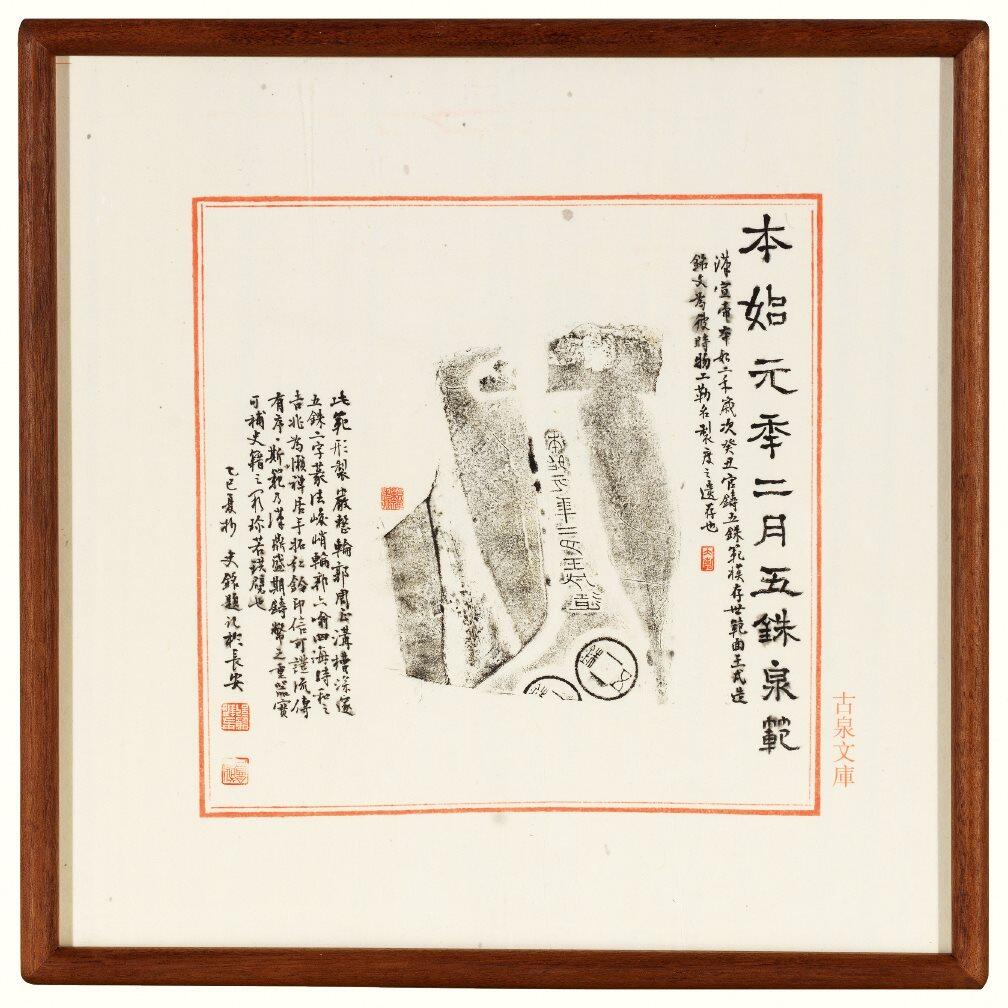 本始元秊二月五銖泉範
漢宣帝本始二年歲次癸丑官鑄五銖範模存世範面王式造
銘文為彼時物工勒名製度之遺存也
本始元年二
五銖
此範形製嚴整輪郭周正溝槽深邃
五銖二字篆法峻峭輪郭四海時和之
吉兆為懶禪居手拓鈐印信可證流傳
有序斯範乃漢鼎盛期鑄幣之重器實
可補史籍之珍若拱璧也
乙巳夏初題記於長安
古泉文庫